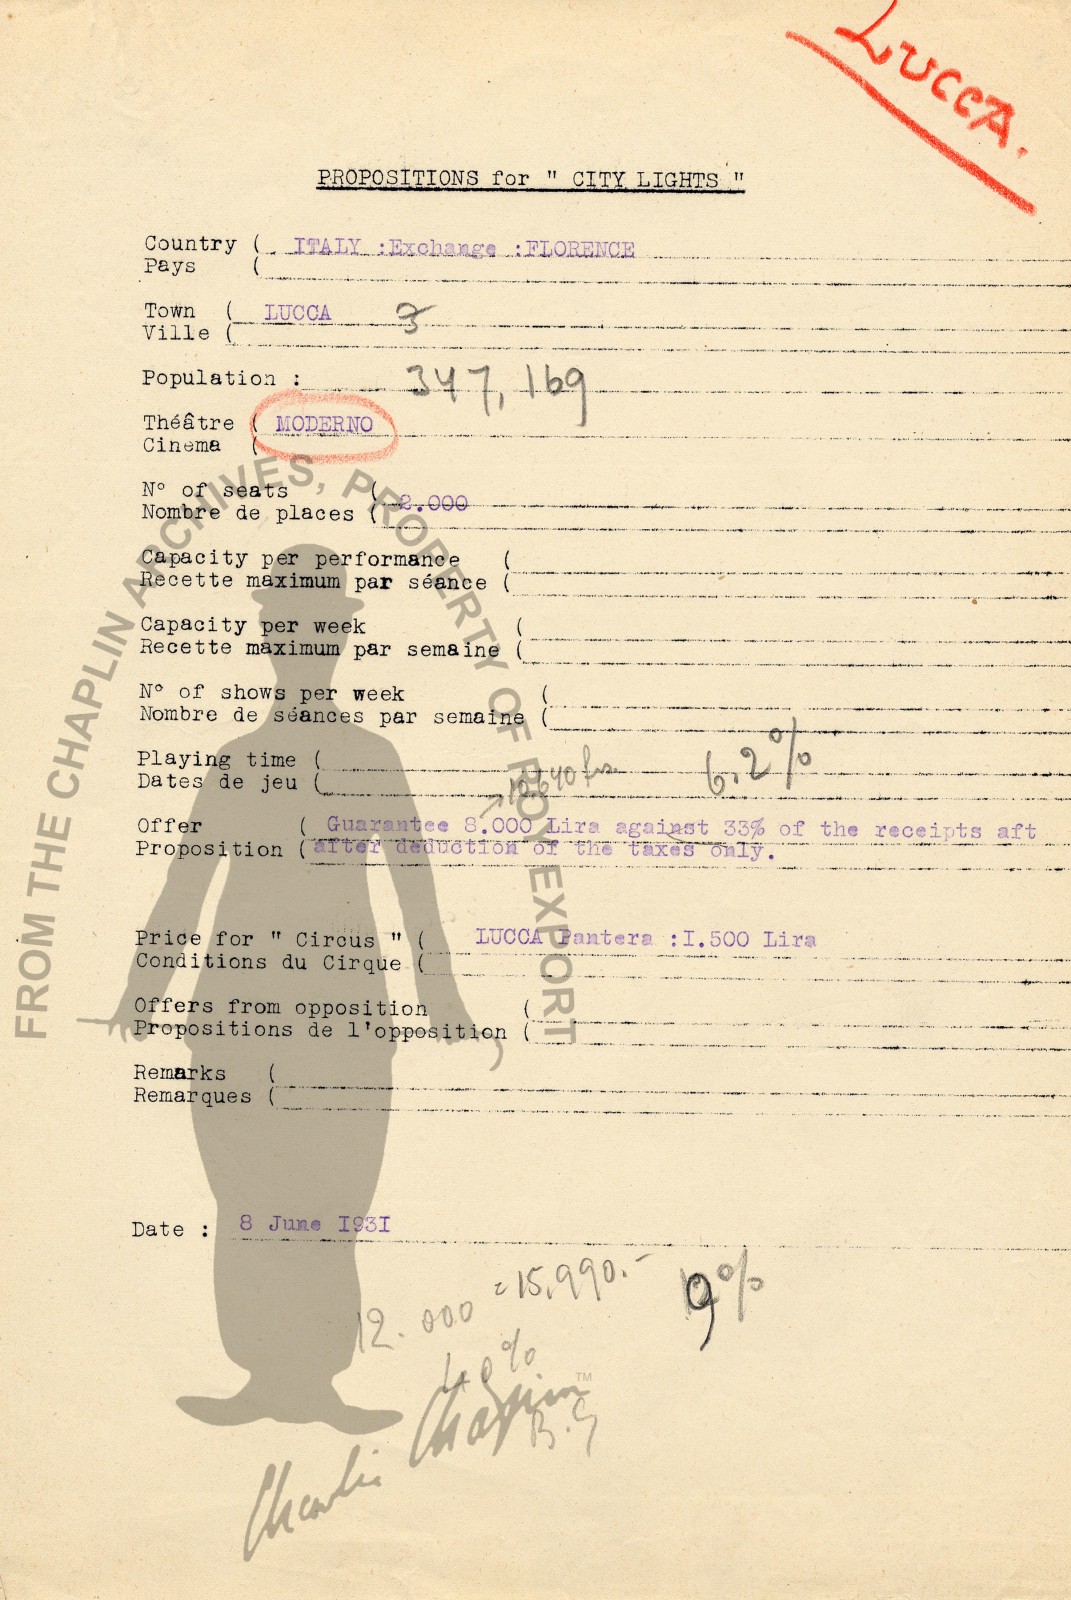 LUCCA.
PROPOSITIONS for " CITY LIGHTS "
Country ( ITALY :Exchange :FLORENCE
Pays (
Town ( LUCCA 3
Ville (
Population : 347,169
Théâtre ( MODERNO
Cinema (
N° of seats (
Nombre de places ( 2.000
Capacity per performance (
Recette maximum par séance (
Capacity per week (
Recette maximum par semaine (
N° of shows per week (
Nombre de séances par semaine (
Playing time ( 6.2%
Dates de jeu (
Offer ( Guarantee 8.000 Lira against 33% of the receipts aft
Proposition ( after deduction of the taxes only.
Price for " Circus " ( LUCCA Pantera :I.500 Lira
Conditions du Cirque (
Offers from opposition (
Propositions de l'opposition (
Remarks (
Remarques (
Date : 8 June I93I
= 15,990.-
9%
12.000
40%
B.G
Charlie Chaplin TM
FROM THE CHAPLIN ARCHIVES, PROPERTY OF ROY EXPORT